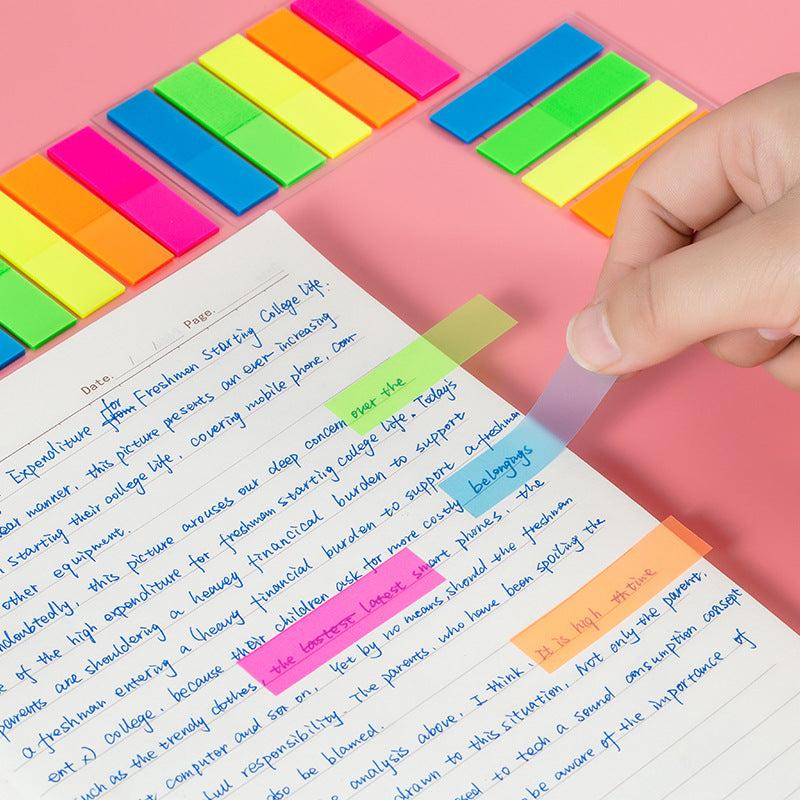 Date.   /   /   Page.
Expenditure for Freshmen Starting College life.
ear manner, this picture presents an ever increasing
starting their college life, covering mobile phone, com
other equipment.
ndoubtedly, this picture arouses our deep concern over the
of the high expenditure for freshmen starting college life. Today's
parents are shouldering a heavy financical burden to support
a freshman entering a (heavy financial burden to support a freshman
ent x) college, because their children ask for more costly belongings
such as the trendy clothes, the lastest latest smart phones, the
computer and so on. Yet by no means should the freshman
full responsibility. The parents, who have been spoiling the
also be blamed.
analysis above, I think, It is high thtime
drawn to this situation. Not only the parent,
sed to tech a sound consumption consept
be aware of the importance of